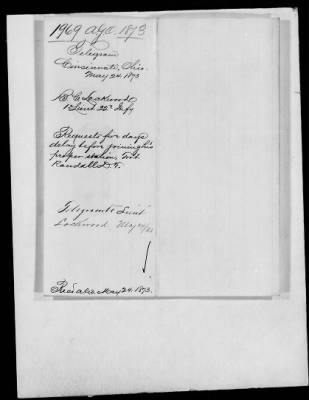 1969 A.G.O. 1873
Telegram
Cincinnati, Ohio.
May 24. 1873
B. C. Lockwood
1st Lieut. 22d Inf.
Requests few days
delay before joining his
proper station, Fort
Randall D.T.
Telegram to Lieut
Lockwood May 24/73
Rec'd A.G.O. May 24. 1873.